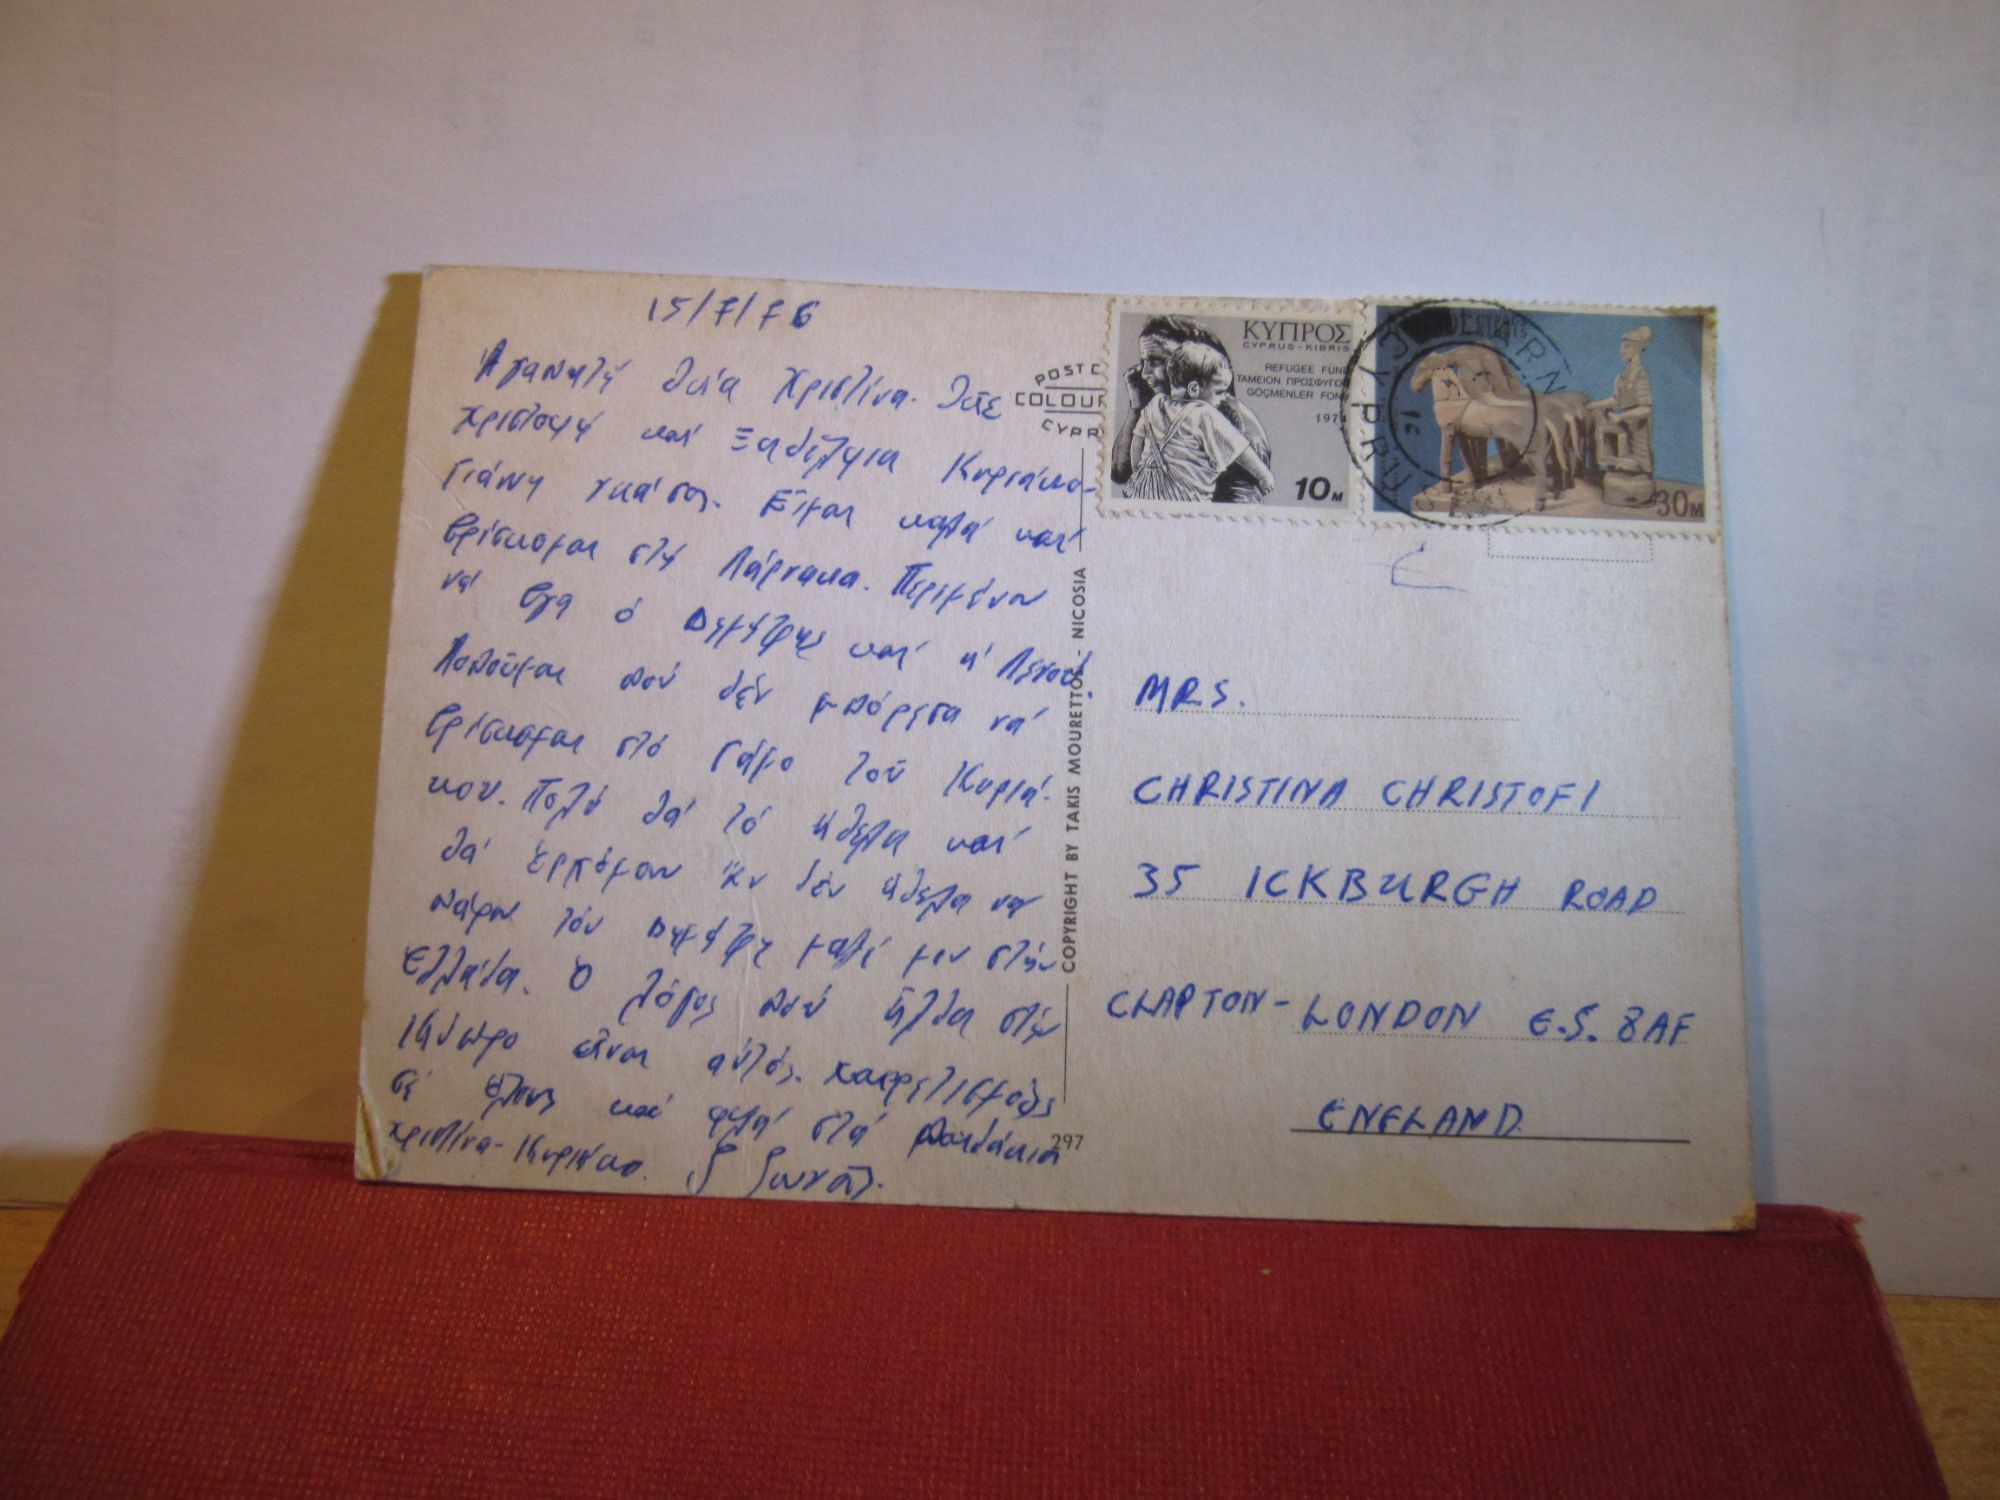 15/7/76
Ἀγαπητή θεία Χριστίνα. Θεῖε
Χριστοφή καί Ξαδέλφια Κυριάκο-
Γιάννη γειά σας. Εἶμαι καλά καί
βρίσκομαι στή Λάρνακα. Περιμένω
νά βγῆ ὁ Δημήτρης καί ἡ
Λυποῦμαι πού δέν μπόρεσα νά
βρίσκομαι στό γάμο τοῦ Κυριά-
κου. Πολύ θά τό ἤθελα καί
θά ἐρχόμουν ἄν δέν ἤθελα να
πάρω τόν Δημήτρη μαζί μου στήν
Ἑλλάδα. Ὁ λόγος πού ἦλθα στήν
Κύπρο εἶναι αὐτός. Χαιρετισμούς
σέ ὅλους καί φιλιά στά παιδάκια
Χριστίνα-Κυριάκο.
POST C
COLOUR
CYPR
COPYRIGHT BY TAKIS MOURETTOS - NICOSIA
297
ΚΥΠΡΟΣ
CYPRUS-KIBRIS
REFUGEE FUND
ΤΑΜΕΙΟΝ ΠΡΟΣΦΥΓΩΝ
GÖÇMENLER FONU
1974
10M
30M
MRS.
CHRISTINA CHRISTOFI
35 ICKBURGH ROAD
CLAPTON-LONDON E.5. 8AF
ENGLAND